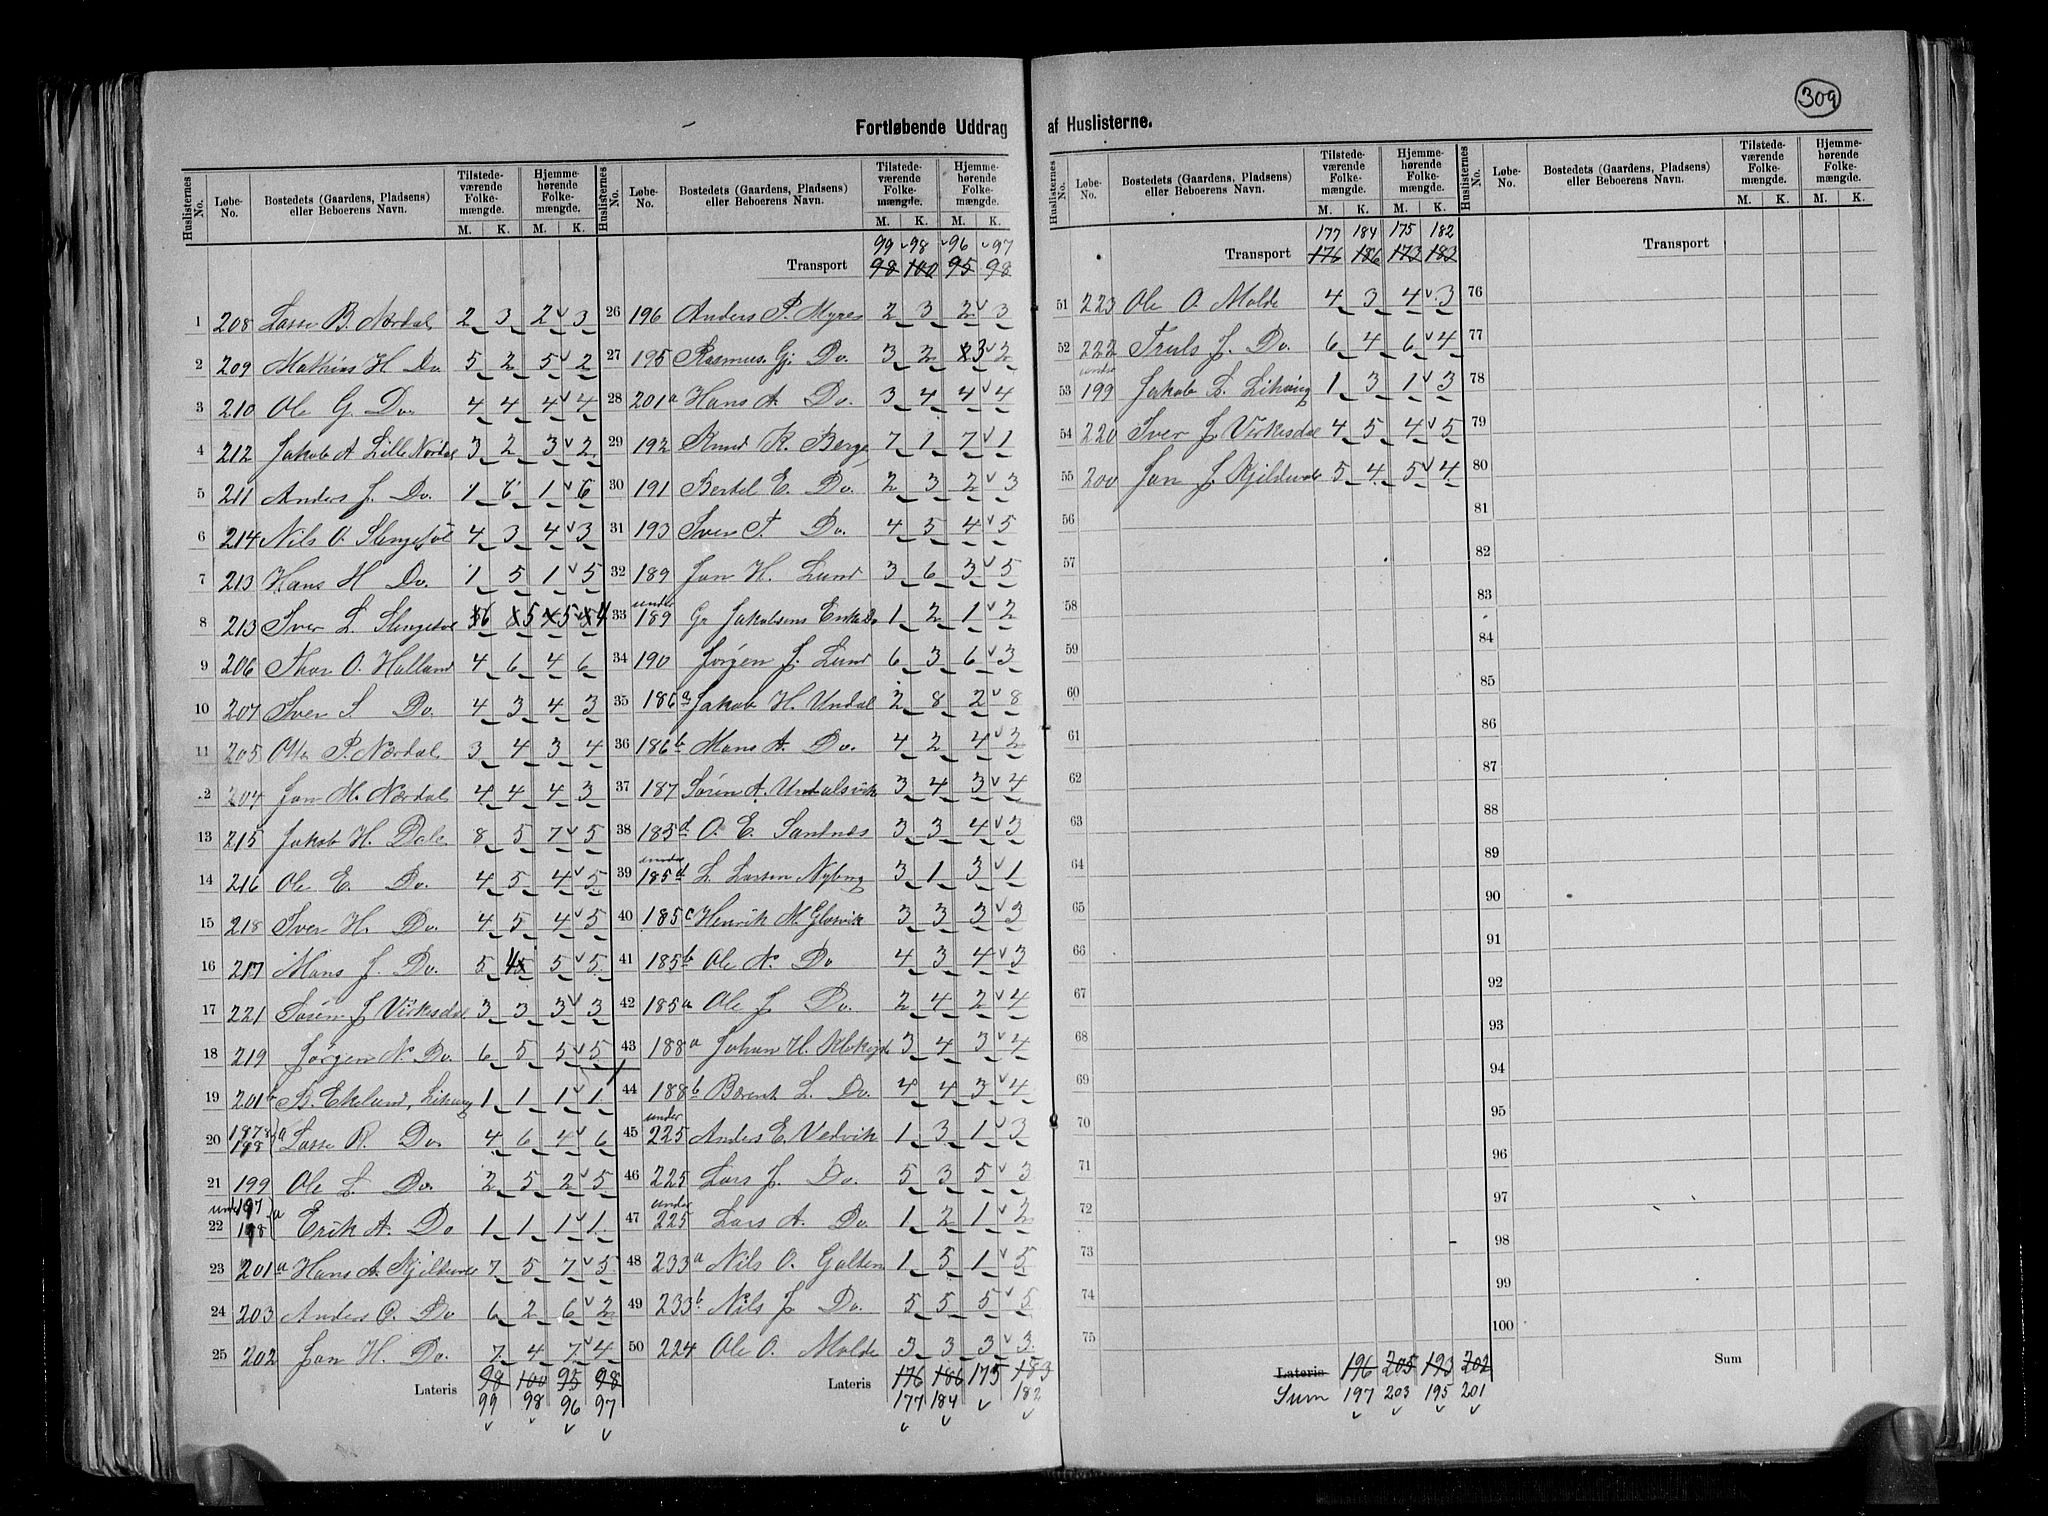 309
Fortløbende Uddrag af Huslisterne.
Huslisternes No. Løbe-No. Bostedets (Gaardens, Pladsens) eller Beboerens Navn. Tilstedeværende Folkemængde. M. K. Hjemmehørende Folkemængde. M. K.
1 208 Lasse B. Nordal 2 3 2 3
2 209 Mathias H Do 5 2 5 2
3 210 Ole G. Do. 4 4 4 4
4 212 Jakob A Lille Nordal 3 2 3 2
5 211 Anders J. Do. 1 6 1 6
6 214 Nils O. 4 3 4 3
7 213 Hans H Do. 1 5 1 5
8 213 Iver L. 6 5 5 4
9 206 Thor O. Halland 4 6 4 6
10 207 Iver S. Do. 4 3 4 3
11 205 P. Nærdal 3 4 3 4
12 204 Jan M. Nærdal 4 4 4 3
13 215 Jakob H. Dale 8 5 7 5
14 216 Ole E. Do. 4 5 4 5
15 218 Iver H. Do. 4 5 4 5
16 217 Mons J. Do. 5 4 5 5
17 221 Søren J. Virkesdal 3 3 3 3
18 219 Jørgen N. Do 6 5 5 5
19 201b B. Ekelund, 1 1 1 1
20 197 & 198 a Lasse R. Do. 4 6 4 6
21 199 Ole L. Do. 2 5 2 5
22 under 197 198 a Erik A. Do 1 1 1 1
23 201a Hans A. 7 5 7 5
24 203 Anders O. Do 6 2 6 2
25 202 Jan H. Do. 7 4 7 4
Lateris 98 100 95 98
99 98 96 97
Huslisternes No. Løbe-No. Bostedets (Gaardens, Pladsens) eller Beboerens Navn. Tilstedeværende Folkemængde. M. K. Hjemmehørende Folkemængde. M. K.
99 98 96 97
Transport 98 100 95 98
26 196 Anders P. Myres 2 3 2 3
27 195 Rasmus Gj. Do. 3 2 3 2
28 201a Hans A. Do. 3 4 4 4
29 192 Knud K. Berge 7 1 7 1
30 191 Bertel E. Do. 2 3 2 3
31 193 Iver T. Do. 4 5 4 5
32 189 Jan H. Lund 3 6 3 5
33 under 189 Gr Jakobsens Enke Do 1 2 1 2
34 190 Jørgen J. Lund 6 3 6 3
35 186a Jakob H. Undal 2 8 2 8
36 186b Mons A. Do. 4 2 4 2
37 187 Søren A. Undalsvik 3 4 3 4
38 185d O. E. Santnæs 3 3 4 3
39 under 185d L. Larsen Nyborg 3 1 3 1
40 185c Henrik M. 3 3 3 3
41 185b Ole N. Do 4 3 4 3
42 185a Ole J. Do. 2 4 2 4
43 188a Johan H. 3 4 3 4
44 188b Bærent L. Do. 4 4 3 4
45 under 225 Anders E. Vedvik 1 3 1 3
46 225 Lars J. Do. 5 3 5 3
47 under 225 Lars A. Do 1 2 1 2
48 233a Nils O. Galten 1 5 1 5
49 233b Nils J. Do. 5 5 5 5
50 224 Ole O. Molde 3 3 3 3
Lateris 176 186 175 183
177 184 182
Huslisternes No. Løbe-No. Bostedets (Gaardens, Pladsens) eller Beboerens Navn. Tilstedeværende Folkemængde. M. K. Hjemmehørende Folkemængde. M. K.
177 184 175 182
Transport 176 186 173 183
51 223 Ole O. Molde 4 3 4 3
52 222 Truls J. Do. 6 4 6 4
53 under 199 Jakob L. 1 3 1 3
54 220 Iver J. Virkesdal 4 5 4 5
55 200 Jan J. 5 4 5 4
56
57
58
59
60
61
62
63
64
65
66
67
68
69
70
71
72
73
74
75
Lateris 196 205 193 202
Sum 197 203 195 201
Huslisternes No. Løbe-No. Bostedets (Gaardens, Pladsens) eller Beboerens Navn. Tilstedeværende Folkemængde. M. K. Hjemmehørende Folkemængde. M. K.
Transport
76
77
78
79
80
81
82
83
84
85
86
87
88
89
90
91
92
93
94
95
96
97
98
99
100
Sum